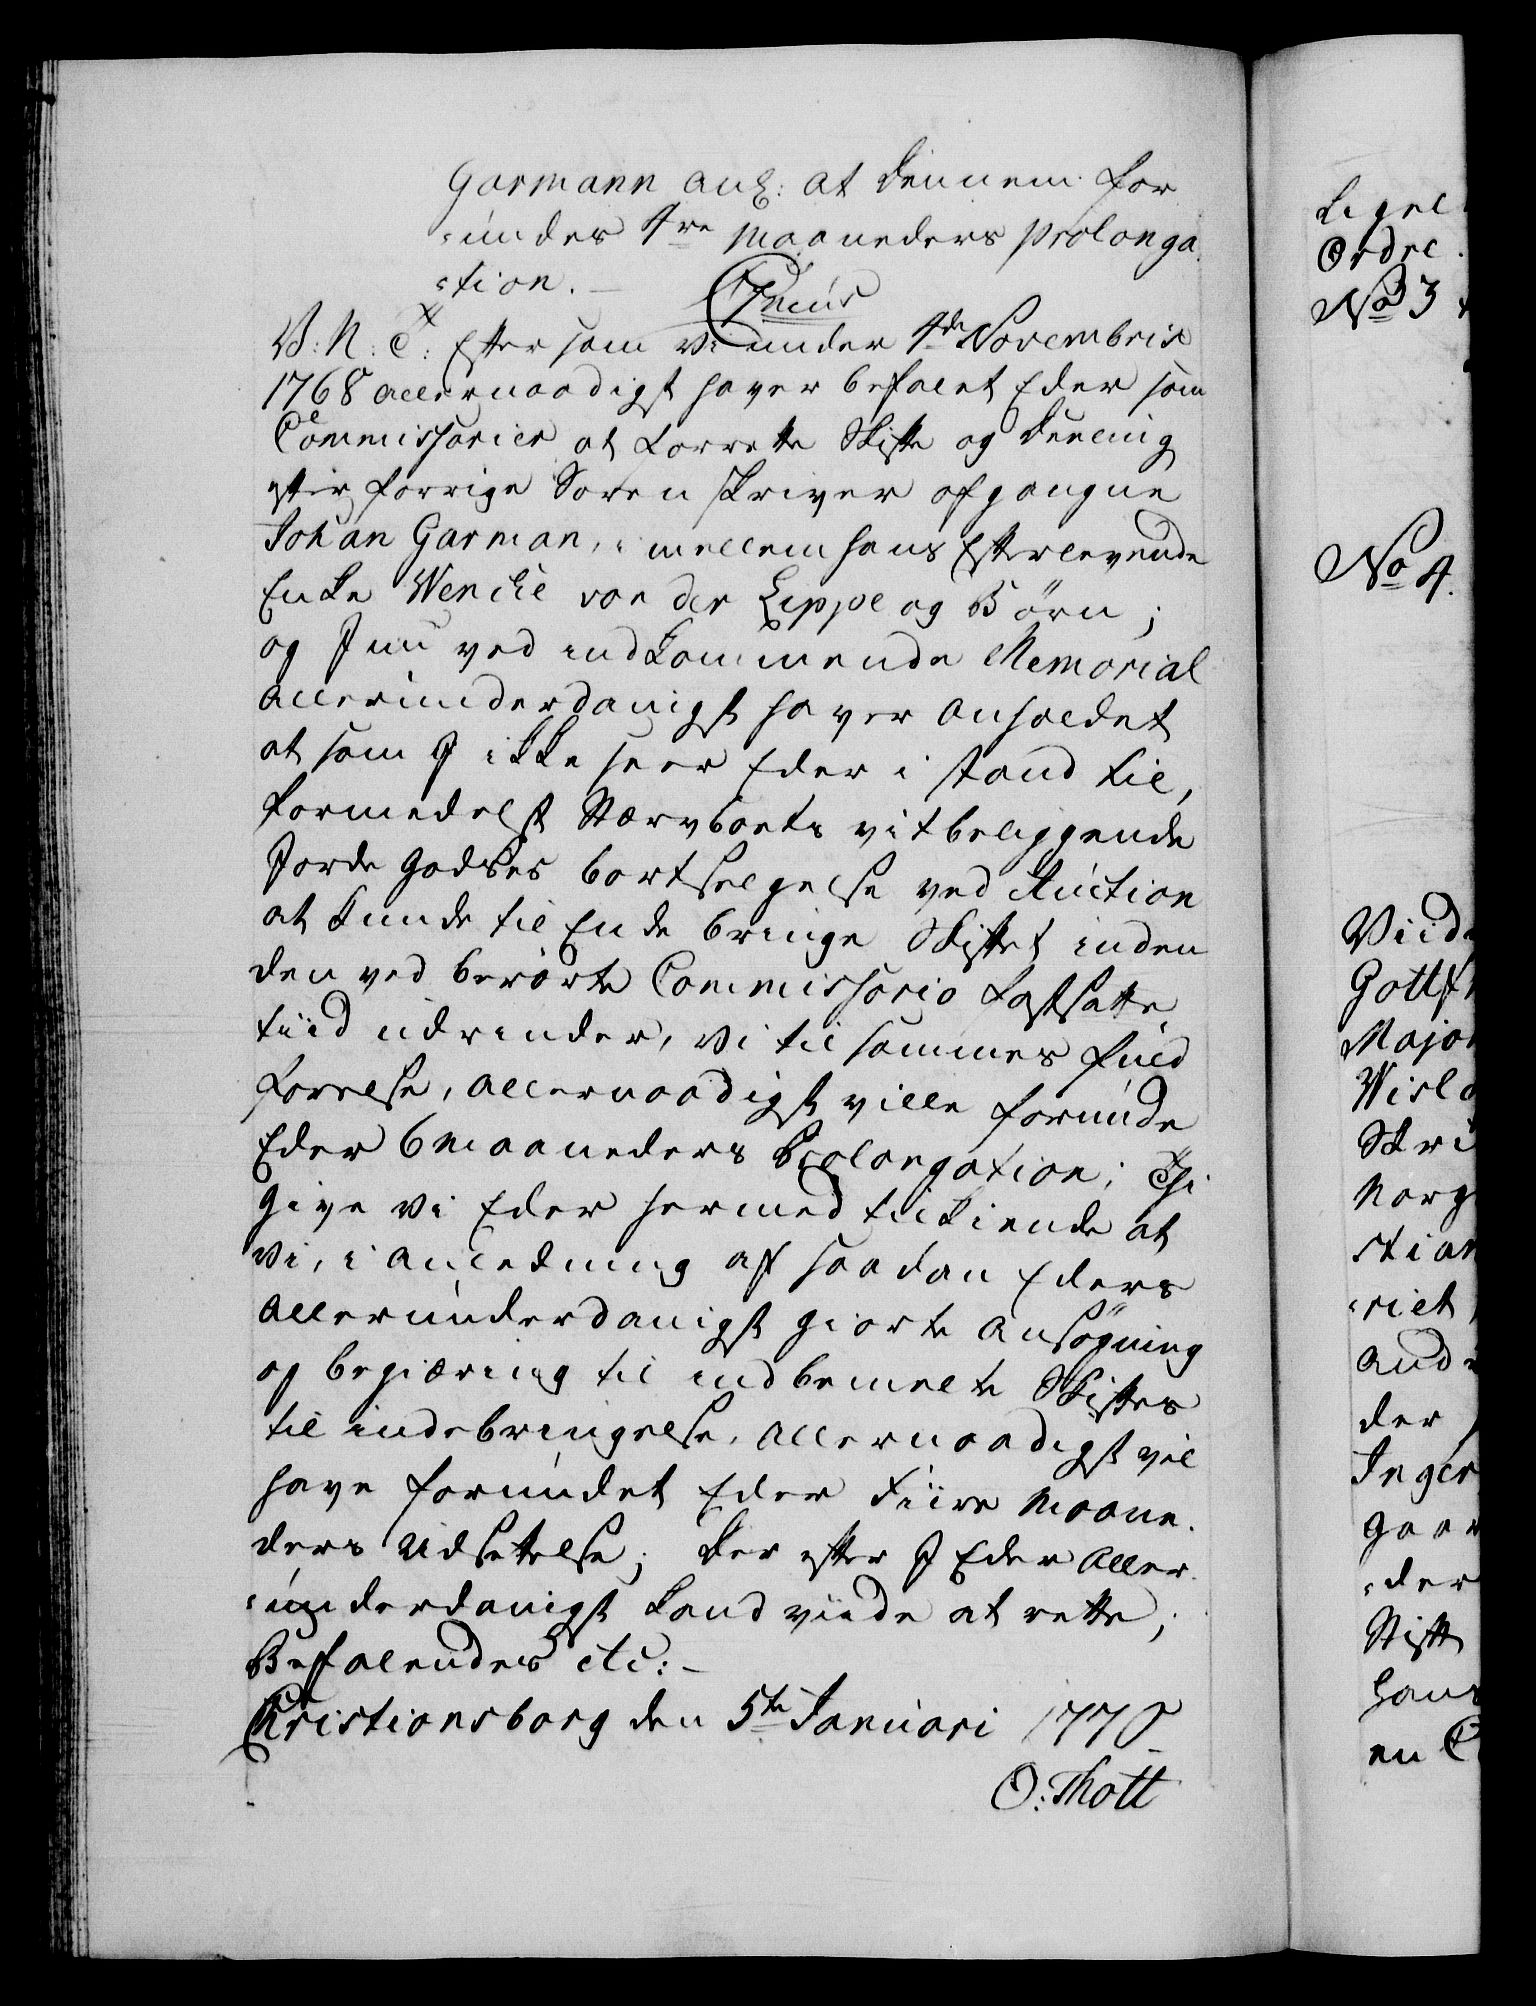 Garmann ang: at dennem for
-undes 4re Maaneders Prolonga
-tion. —
V: N: T: Efter som Vi under 4de Novembris
1768 allernaadigst haver befalet Eder som
Commissarier at forrette Skifte og Deeling
efter forrige Soren skriver afgangne
Johan Garman, imellem hans Efterlevende
Enke Wenche von der Lippe og Børn;
og I nu ved indkommende Memorial
allerunderdanigst haver anholdet
at som I ikke seer Eder i stand til,
formedelst Stærvboets vitbeliggende
Jorde Godses bortselgelse ved Auction
at kunde til Ende bringe Skiftet inden
den ved berørte Commissorio fastsatte
tiid udrinder, Vi til sammes fuld
førelse, allernaadigst ville forunde
Eder 6 Maaneders Prolongation; Thi
give Vi Eder hermed tilkiende at
Vi, i anledning af saadan Eders
allerunderdanigst giorte Ansøgning
og begiæring til indbemelte Skiftes
til indebringelse, allernaadigst vil
have forundet Eder Fiire Maane-
ders Udsettelse; der efter I Eder Aller-
-underdanigst kand viide at rette;
Befalendes etc: —
Christiansborg den 5te Januari 1770
O: Thott
Ligel
Ordre.
No 3
No 4.
Viid
Gottf
Major
Wisl
Skri
Norg
stian
-riet,
and
der
Inger
gaar
-der
Stift
hans
en C